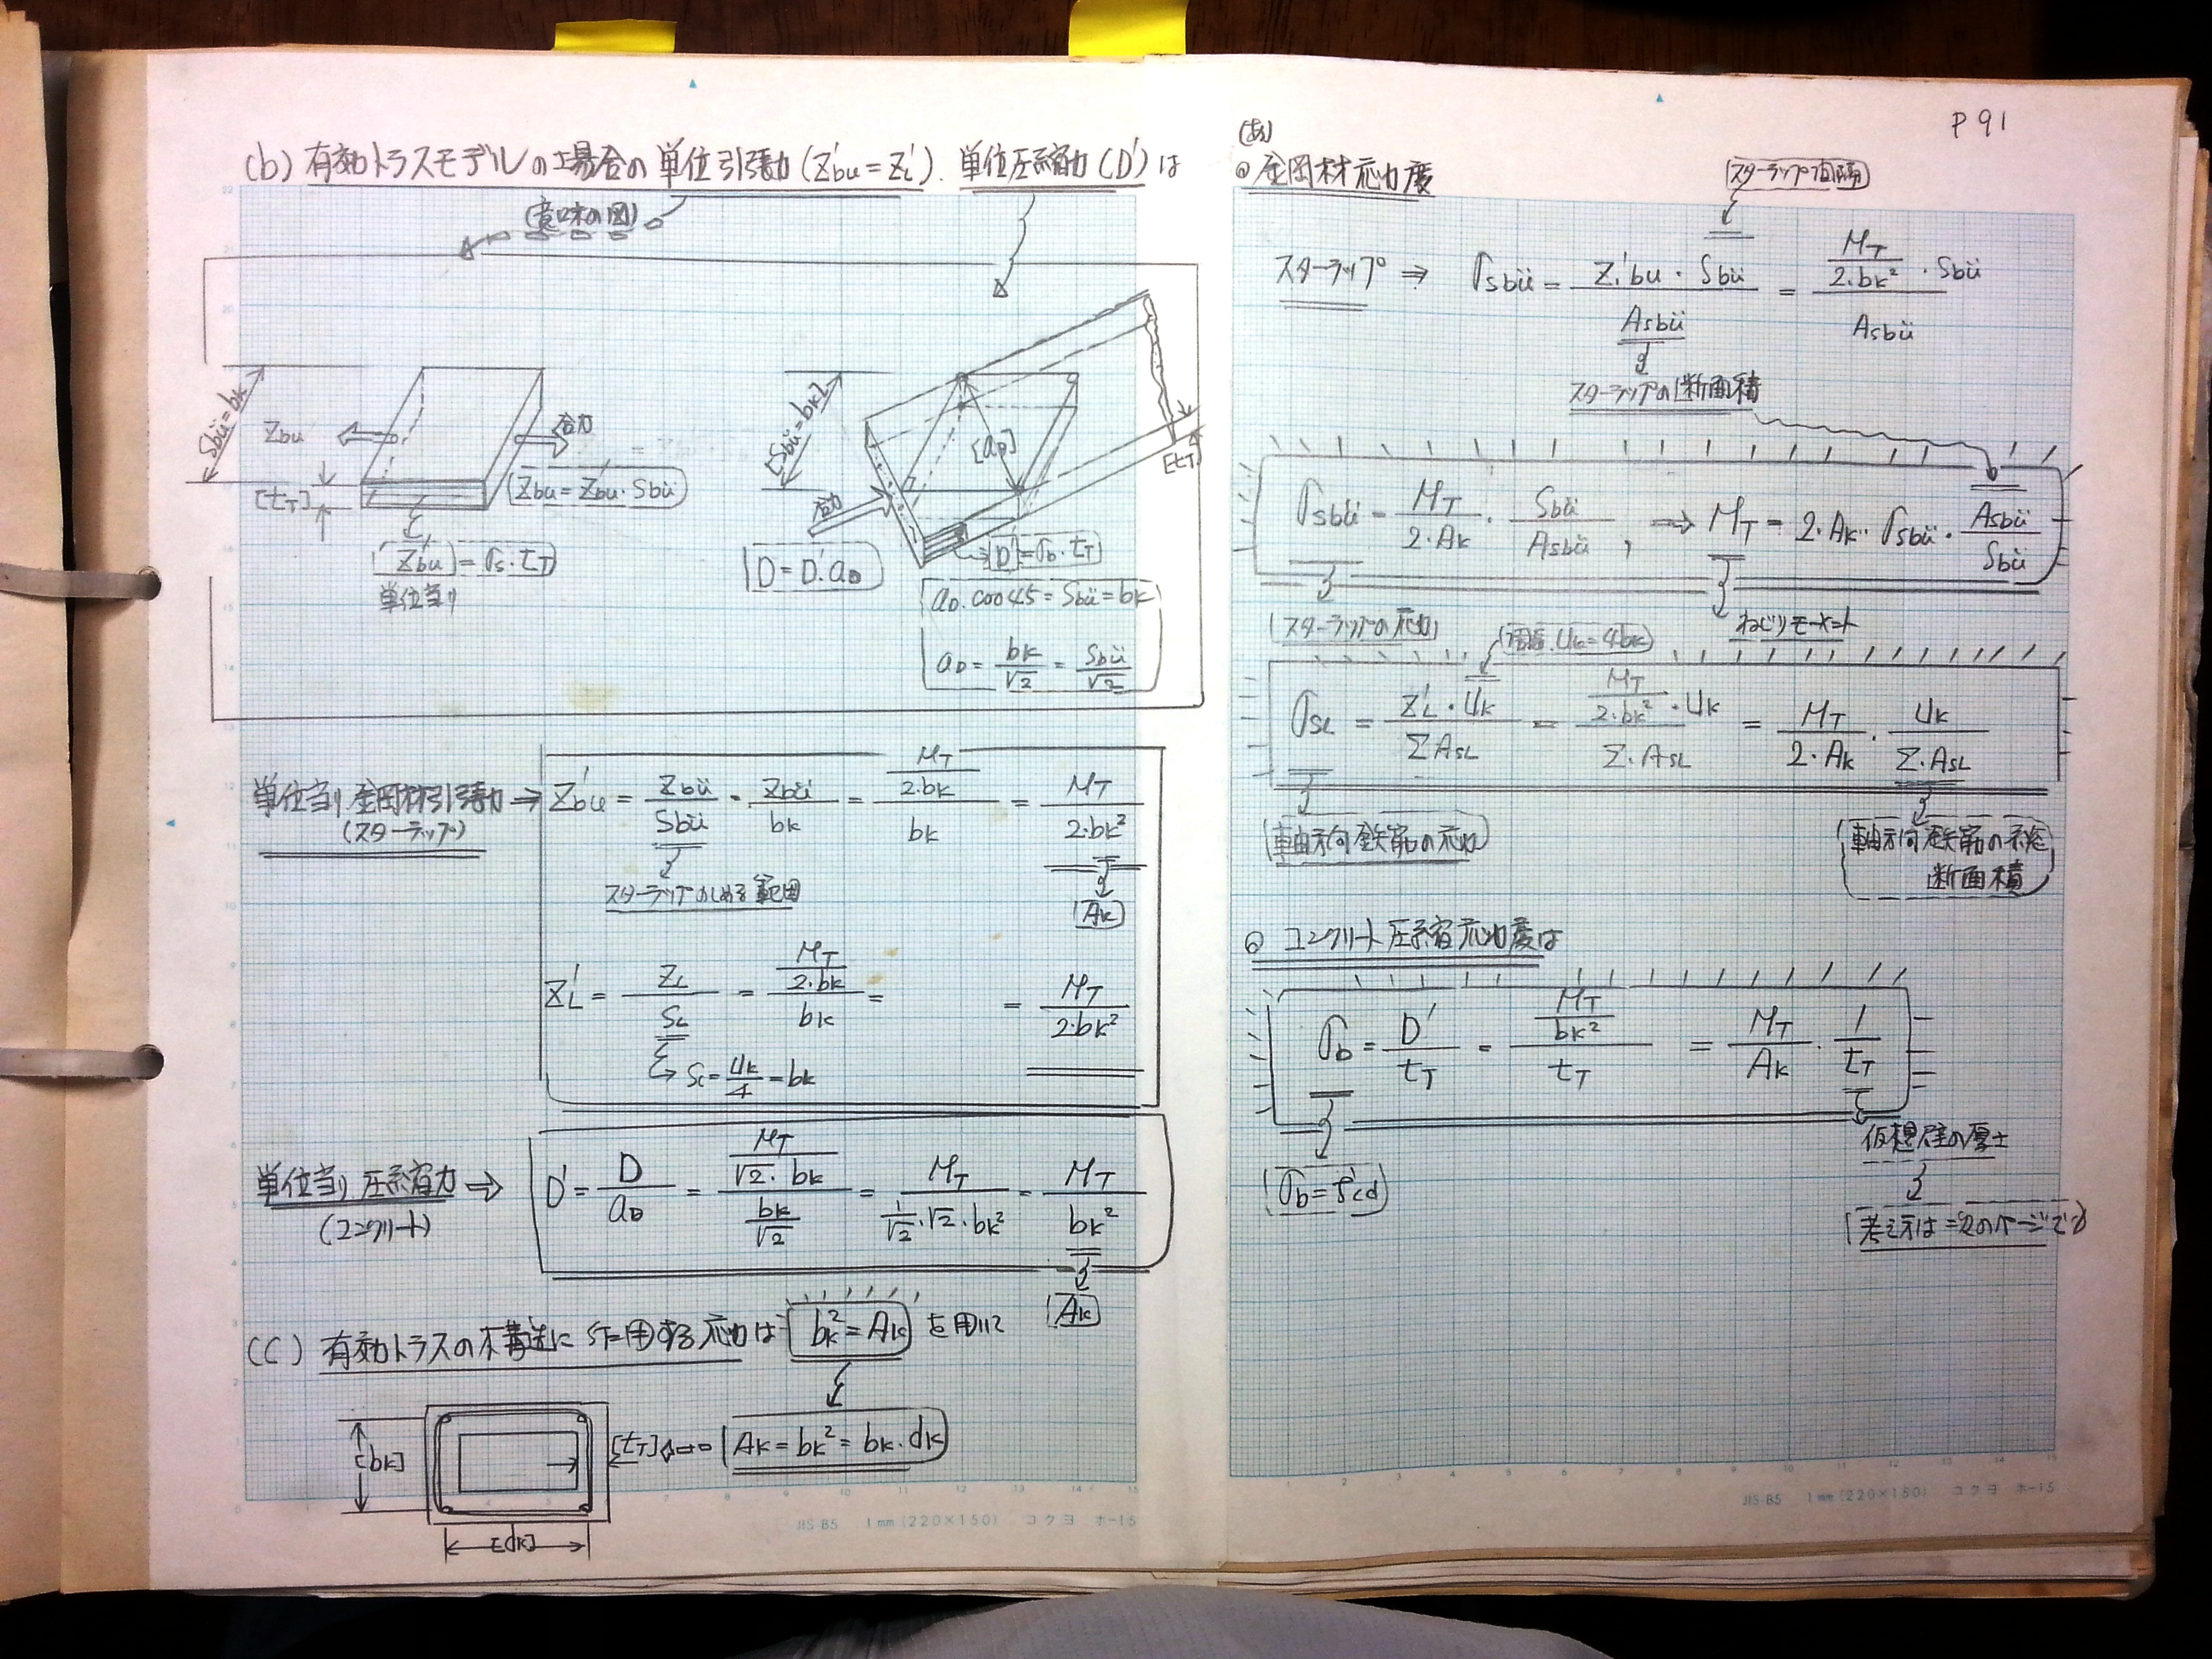 (b) 有効トラスモデルの場合の単位引張力 (Z'bü = Z'L). 単位圧縮力 (D') は
(意味の図)
Sbü = bk
Zbü
合力
[tT]
Zbü = Z'bü · Sbü
Z'bü = σs · tT
単位当り
[Sbü = bk]
[aD]
[tT]
合力
D = D' · aD
D' = σb · tT
aD · cos45 = Sbü = bk
aD = bk/√2 = Sbü/√2
単位当り鋼材引張力 ⇒ Z'bü = Zbü/Sbü = Zbü/bk = (MT/2·bk)/bk = MT/2·bk²
(スターラップ)
スターラップのしめる範囲
[Ak]
Z'L = ZL/SL = (MT/2·bk)/bk = = MT/2·bk²
SL = Uk/4 = bk
単位当り圧縮力 ⇒ D' = D/aD = (MT/√2·bk)/(bk/√2) = MT/(1/√2·√2·bk²) = MT/bk²
(コンクリート)
[Ak]
(C) 有効トラスの構造に作用する応力は bk² = Ak を用いて
[bk]
[tT]
Ak = bk² = bk · dk
[dk]
JIS-B5 1mm (220×150) コクヨ ホ-15
P 91
(あ)
鋼材応力度
スターラップ間隔
スターラップ ⇒ σsbü = Z'bü · Sbü/Asbü = (MT/2·bk² · Sbü)/Asbü
スターラップの断面積
σsbü = MT/2·Ak · Sbü/Asbü, → MT = 2·Ak·σsbü · Asbü/Sbü
スターラップの応力
周長 Uk = 4bk
ねじりモーメント
σSL = Z'L · Uk/ΣASL = (MT/2·bk² · Uk)/Σ·ASL = MT/2·Ak · Uk/Σ·ASL
軸方向鉄筋の応力
軸方向鉄筋の総
断面積
コンクリート圧縮応力度は
σb = D'/tT = (MT/bk²)/tT = MT/Ak · 1/tT
σb = f'cd
仮想壁の厚さ
考え方は=次のページで
JIS-B5 1mm (220×150) コクヨ ホ-15